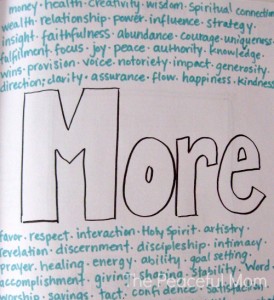 money · health · creativity · wisdom · spiritual connection
wealth · relationship · power · influence · strategy ·
insight · faithfulness · abundance · courage · uniqueness
fulfilment · focus · joy · peace · authority · knowledge ·
wins · provision · voice · notoriety · impact · generosity ·
direction · clarity · assurance · flow · happiness · kindness
More
favor · respect · interaction · Holy Spirit · artistry ·
revelation · discernment · discipleship · intimacy ·
prayer · healing · energy · ability · goal setting ·
accomplishment · giving · sharing · Word
The Peaceful Mom
worship · savings · tact · confidence · satisfaction